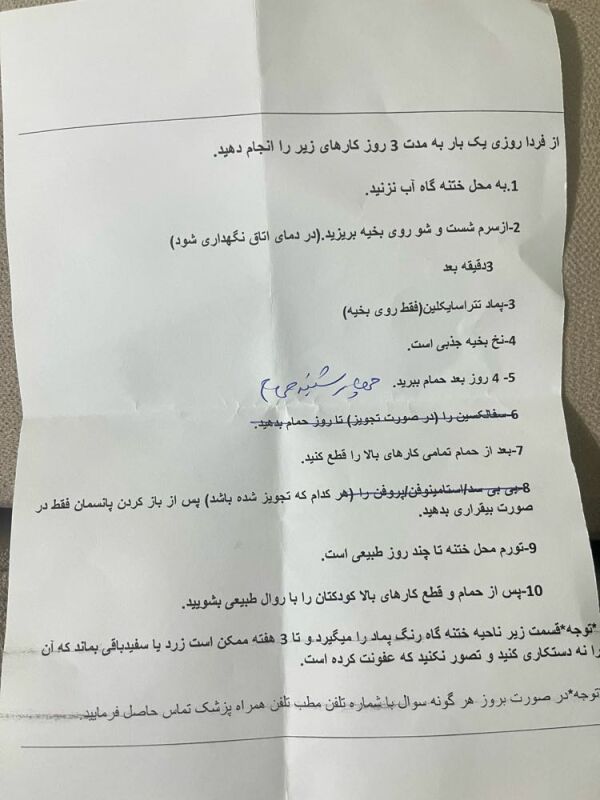 از فردا روزی یک بار به مدت 3 روز کارهای زیر را انجام دهید.
1.به محل ختنه گاه آب نزنید.
2-ازسرم شست و شو روی بخیه بریزید.(در دمای اتاق نگهداری شود)
3دقیقه بعد
3-پماد تتراسایکلین(فقط روی بخیه)
4-نخ بخیه جذبی است.
5- 4 روز بعد حمام ببرید. چهارشنبه
6-سفالکسین را (در صورت تجویز) تا روز حمام بدهید.
7-بعد از حمام تمامی کارهای بالا را قطع کنید.
8-بی بی سد/استامینوفن/پروفن را (هر کدام که تجویز شده باشد) پس از باز کردن پانسمان فقط در
صورت بیقراری بدهید.
9-تورم محل ختنه تا چند روز طبیعی است.
10-پس از حمام و قطع کارهای بالا کودکتان را با روال طبیعی بشویید.
*توجه*قسمت زیر ناحیه ختنه گاه رنگ پماد را میگیرد.و تا 3 هفته ممکن است زرد یا سفیدباقی بماند که آن
را نه دستکاری کنید و تصور نکنید که عفونت کرده است.
توجه*در صورت بروز هر گونه سوال با شماره تلفن مطب تلفن همراه پزشک تماس حاصل فرمایید.